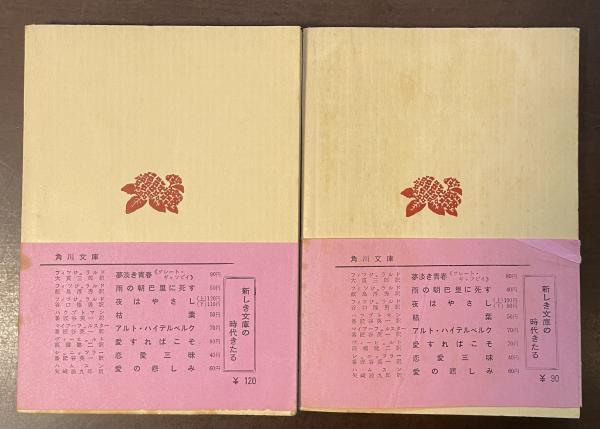 角川文庫
フィツジェラルド
大貫三郎訳
夢淡き青春《グレート・ギャツビイ》
フィツジェラルド
飯島淳秀訳
雨の朝巴里に死す 50円
フィツジェラルド
谷口陸男訳
夜はやさし
ハウプトマン
番匠谷英一訳
枯葉 50円
マイアーフェルスター
番匠谷英一訳
アルト・ハイデルベルク 70円
愛すればこそ
シュニッツラー
番匠谷英一訳
恋愛三昧 40円
ハムスン
矢崎源九郎訳
愛の悲しみ 60円
新しき文庫の
時代きたる
¥ 120
角川文庫
フィツジェラルド
大貫三郎訳
夢淡き青春《グレート・ギャツビイ》
フィツジェラルド
飯島淳秀訳
雨の朝巴里に死す 40円
フィツジェラルド
谷口陸男訳
夜はやさし
ハウプトマン
番匠谷英一訳
枯葉 50円
マイアーフェルスター
番匠谷英一訳
アルト・ハイデルベルク 70円
愛すればこそ
シュニッツラー
番匠谷英一訳
恋愛三昧 40円
ハムスン
矢崎源九郎訳
愛の悲しみ 60円
新しき文庫の
時代きたる
¥ 90